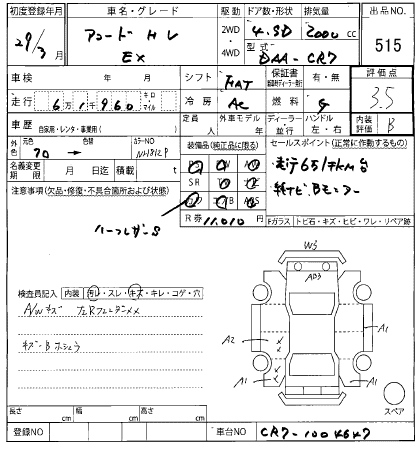 初度登録年月 車名・グレード 駆動 ドア数・形状 排気量 出品NO.
29/3月 アコード H V 2WD 4.SD 2000 cc 515
EX 4WD 型式 DAA-CR7
車検 年 月 シフト FAT 保証書 有・無 評価点
走行 6万1千960 キロ マイル 冷房 AC 燃料 G 3.5
車歴 自家用・レンタ・事業用( ) 定員 人 外車モデル 年 ディーラー 並行 ハンドル 左・右 内装評価 B
外色 元色 色替 カラーNO 装備品(純正品に限る) セールスポイント(正常に作動するもの)
70 → NH812P
名義変更期限 月 日迄 積載 t SR
注意事項(欠品・修復・不具合箇所および状態)
純ナビ Bモニター
ハーフレザーS
R券 11,010 円 Fガラス トビ石・キズ・ヒビ・ワレ・リペア跡
W3
AD3
検査員記入 内装 汚レ・スレ・キズ・キレ・コゲ・穴
A/Wキズ
A2 A1
キズ・B ホシュウ
A1 A1
スペア
長さ cm 幅 cm 高さ cm
登録NO 車台NO CR7-1004647